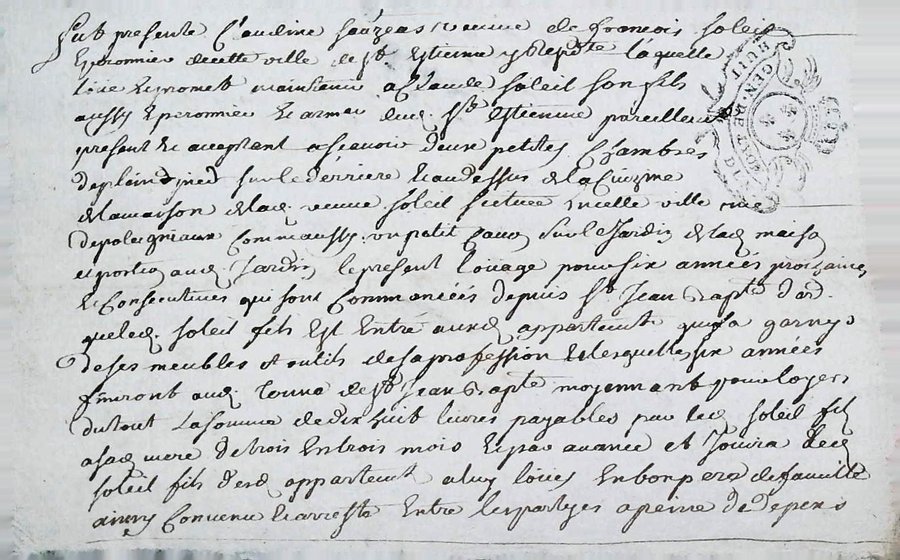 fut presente Claudine sauzeas veuve de francois soleil
Eperonnier de cette ville de st. Estienne y Residte laquelle
Loue et promet maintenir a Claude soleil son fils
aussy Eperonnier et armeur dud. st. estienne pareillement
present et acceptant a scavoir deux petites Chambres
de plain pied sur le dérriere et au dessus de la Cuizine
de la maison de lad. veuve soleil scituée en celle ville rue
de polaignieux Comm'aussy un petit Caveau sur le Jardin de lad. maison
et portion aud. Jardin le present Loüage pour six années prochaines
et Consecutives qui sont Commancées depuis st. Jean Bapte. d'ard.
que led. soleil fils Est Entré auxd. appartements qu'il a garny
de ses meubles et outils de sa profession et lesquelles six années
finiront aud. terme de st. Jean Bapte. moyennant pour loyers
du tout La somme de dix huit livres payables par led. soleil fils
a sad. mere de trois En trois mois Et par avance et Jouira led.
soleil fils desd. appartements a luy loüés En bon pere de famille
ainsy Convenu et arresté Entre les partyes a peine de depens
GEN. DE LYON
HUIT